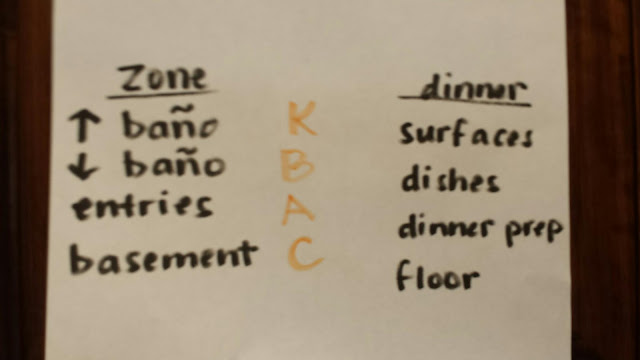 Zone dinner
↑ baño K surfaces
↓ baño B dishes
entries A dinner prep
basement C floor